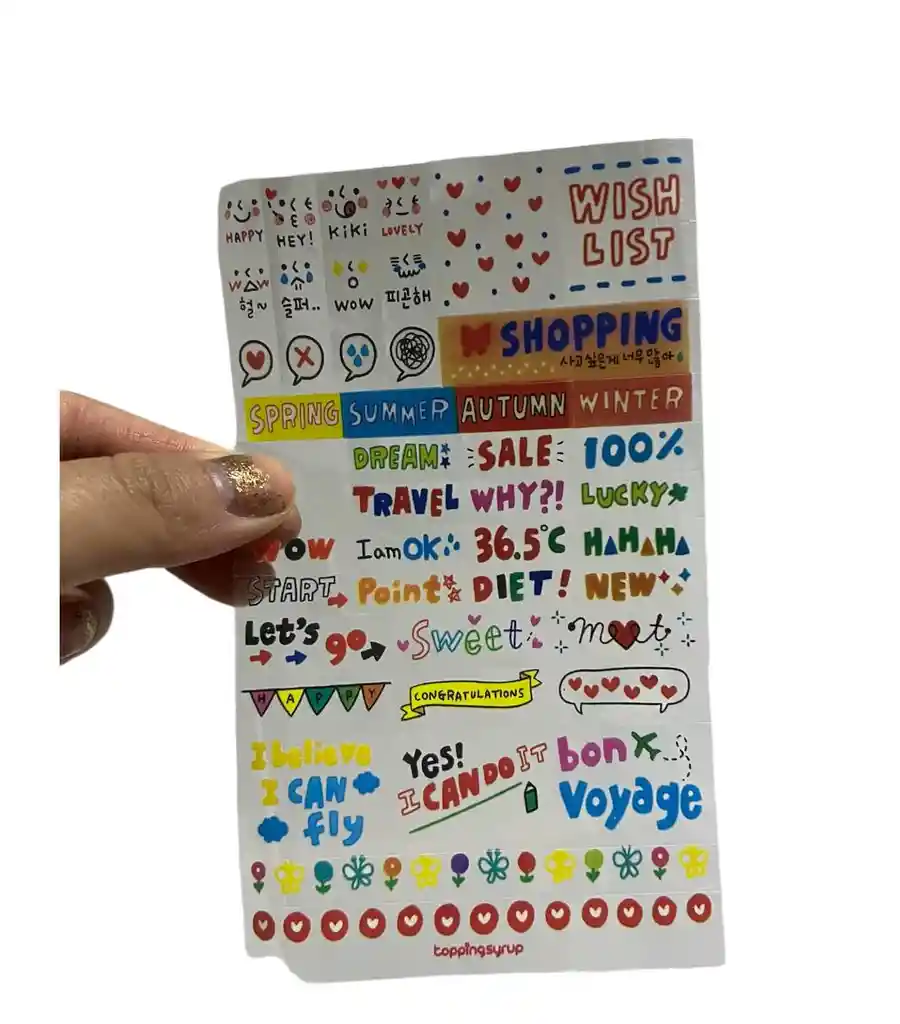 HAPPY HEY! KiKi LOVELY
WISH
LIST
헐~ 슬퍼.. WOW 피곤해
SHOPPING
사고싶은게 너무많아
SPRING SUMMER AUTUMN WINTER
DREAM SALE 100%
TRAVEL WHY?! LUCKY
WOW I am OK 36.5°C HAHAHA
START Point DIET! NEW
Let's go Sweet meet
HAPPY CONGRATULATIONS
I believe
I CAN
fly
Yes!
I CAN DO IT
bon
Voyage
toppingsyrup